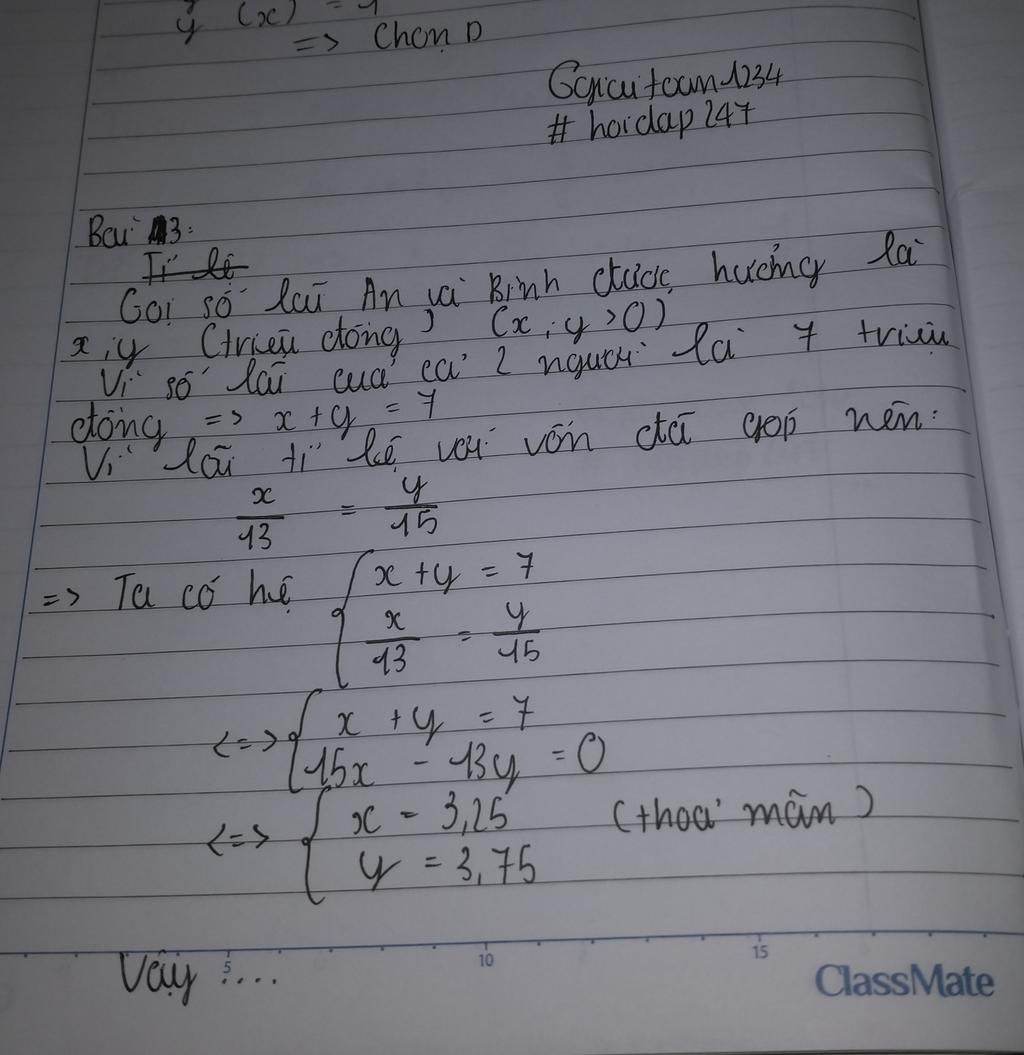 y (x) = 4
=> Chọn D
Ggicuitoxm1234
# hoidap247
Bài 13:
Tỉ lệ
Gọi số lãi An và Bình được hưởng là
x, y (triệu đồng) (x, y > 0)
Vì số lãi của cả 2 người là 7 triệu
đồng => x + y = 7
Vì lãi tỉ lệ với vốn đã góp nên:
x/13 = y/15
=> Ta có hệ { x + y = 7
x/13 = y/15
<=> { x + y = 7
15x - 13y = 0
<=> { x = 3,25 (thoả mãn)
y = 3,75
Vậy ....
5 10 15
ClassMate